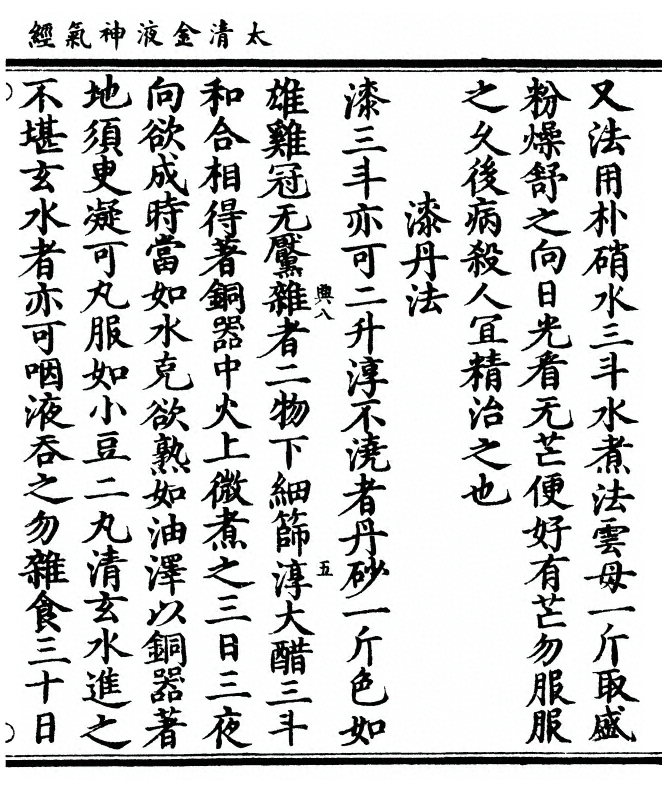 太清金液神氣經
又法用朴硝水三斗水煮法雲母一斤取盛
粉燥舒之向日光看无芒便好有芒勿服服
之久後病殺人宜精治之也
漆丹法
漆三斗亦可二升淳不澆者丹砂一斤色如
雄雞冠无黶雜者二物下細篩淳大醋三斗
興八
五
和合相得著銅器中火上微煮之三日三夜
向欲成時當如水克欲熟如油澤以銅器著
地須更凝可丸服如小豆二丸清玄水進之
不堪玄水者亦可咽液吞之勿雜食三十日